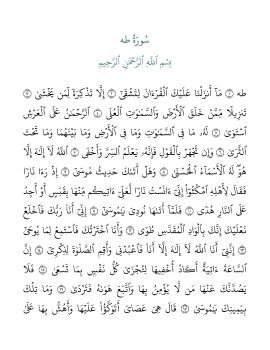 سُورَةُ طه
بِسْمِ ٱللَّهِ ٱلرَّحْمَٰنِ ٱلرَّحِيمِ
طه ١ مَآ أَنزَلْنَا عَلَيْكَ ٱلْقُرْءَانَ لِتَشْقَىٰٓ ٢ إِلَّا تَذْكِرَةً لِّمَن يَخْشَىٰ ٣
تَنزِيلًا مِّمَّنْ خَلَقَ ٱلْأَرْضَ وَٱلسَّمَٰوَٰتِ ٱلْعُلَى ٤ ٱلرَّحْمَٰنُ عَلَى ٱلْعَرْشِ
ٱسْتَوَىٰ ٥ لَهُۥ مَا فِى ٱلسَّمَٰوَٰتِ وَمَا فِى ٱلْأَرْضِ وَمَا بَيْنَهُمَا وَمَا تَحْتَ
ٱلثَّرَىٰ ٦ وَإِن تَجْهَرْ بِٱلْقَوْلِ فَإِنَّهُۥ يَعْلَمُ ٱلسِّرَّ وَأَخْفَى ٧ ٱللَّهُ لَآ إِلَٰهَ إِلَّا
هُوَ ۖ لَهُ ٱلْأَسْمَآءُ ٱلْحُسْنَىٰ ٨ وَهَلْ أَتَىٰكَ حَدِيثُ مُوسَىٰٓ ٩ إِذْ رَءَا نَارًا
فَقَالَ لِأَهْلِهِ ٱمْكُثُوٓا۟ إِنِّىٓ ءَانَسْتُ نَارًا لَّعَلِّىٓ ءَاتِيكُم مِّنْهَا بِقَبَسٍ أَوْ أَجِدُ
عَلَى ٱلنَّارِ هُدًى ١٠ فَلَمَّآ أَتَىٰهَا نُودِىَ يَٰمُوسَىٰٓ ١١ إِنِّىٓ أَنَا۠ رَبُّكَ فَٱخْلَعْ
نَعْلَيْكَ ۖ إِنَّكَ بِٱلْوَادِ ٱلْمُقَدَّسِ طُوًى ١٢ وَأَنَا ٱخْتَرْتُكَ فَٱسْتَمِعْ لِمَا يُوحَىٰٓ
١٣ إِنَّنِىٓ أَنَا ٱللَّهُ لَآ إِلَٰهَ إِلَّآ أَنَا۠ فَٱعْبُدْنِى وَأَقِمِ ٱلصَّلَوٰةَ لِذِكْرِىٓ ١٤ إِنَّ
ٱلسَّاعَةَ ءَاتِيَةٌ أَكَادُ أُخْفِيهَا لِتُجْزَىٰ كُلُّ نَفْسٍۭ بِمَا تَسْعَىٰ ١٥ فَلَا
يَصُدَّنَّكَ عَنْهَا مَن لَّا يُؤْمِنُ بِهَا وَٱتَّبَعَ هَوَىٰهُ فَتَرْدَىٰ ١٦ وَمَا تِلْكَ
بِيَمِينِكَ يَٰمُوسَىٰ ١٧ قَالَ هِىَ عَصَاىَ أَتَوَكَّؤُا۟ عَلَيْهَا وَأَهُشُّ بِهَا عَلَىٰ